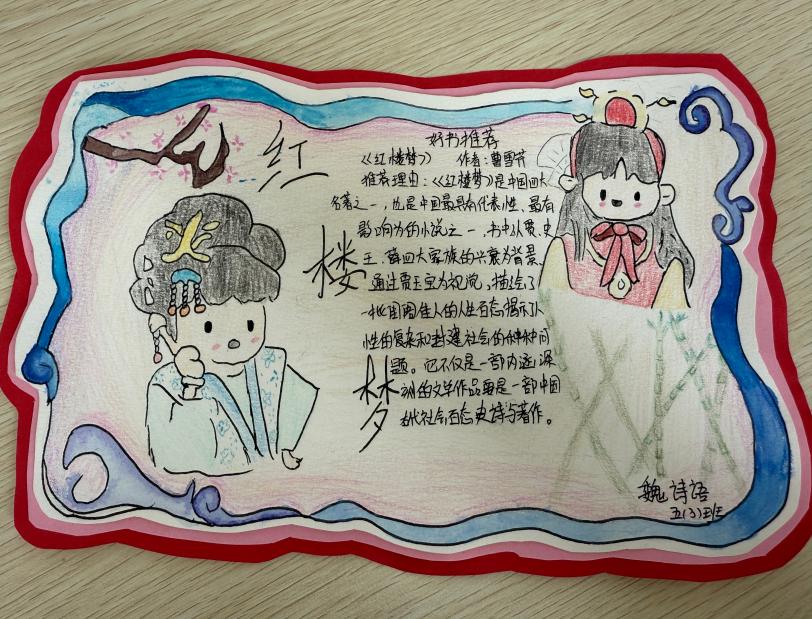 红
楼
梦
好书推荐
《红楼梦》 作者:曹雪芹
推荐理由:《红楼梦》是中国四大
名著之一,也是中国最具有代表性、最有
影响力的小说之一,书中以贾、史
王、薛四大家族的兴衰为背景、
通过贾玉宝为视觉,描绘了
一批闺阁佳人的人生百态揭示了人
性的复杂和封建社会的种种问
题。它不仅是一部内涵深
刻的文学作品更是一部中国
古代社会百态史诗与著作。
魏诗语
五(3)班